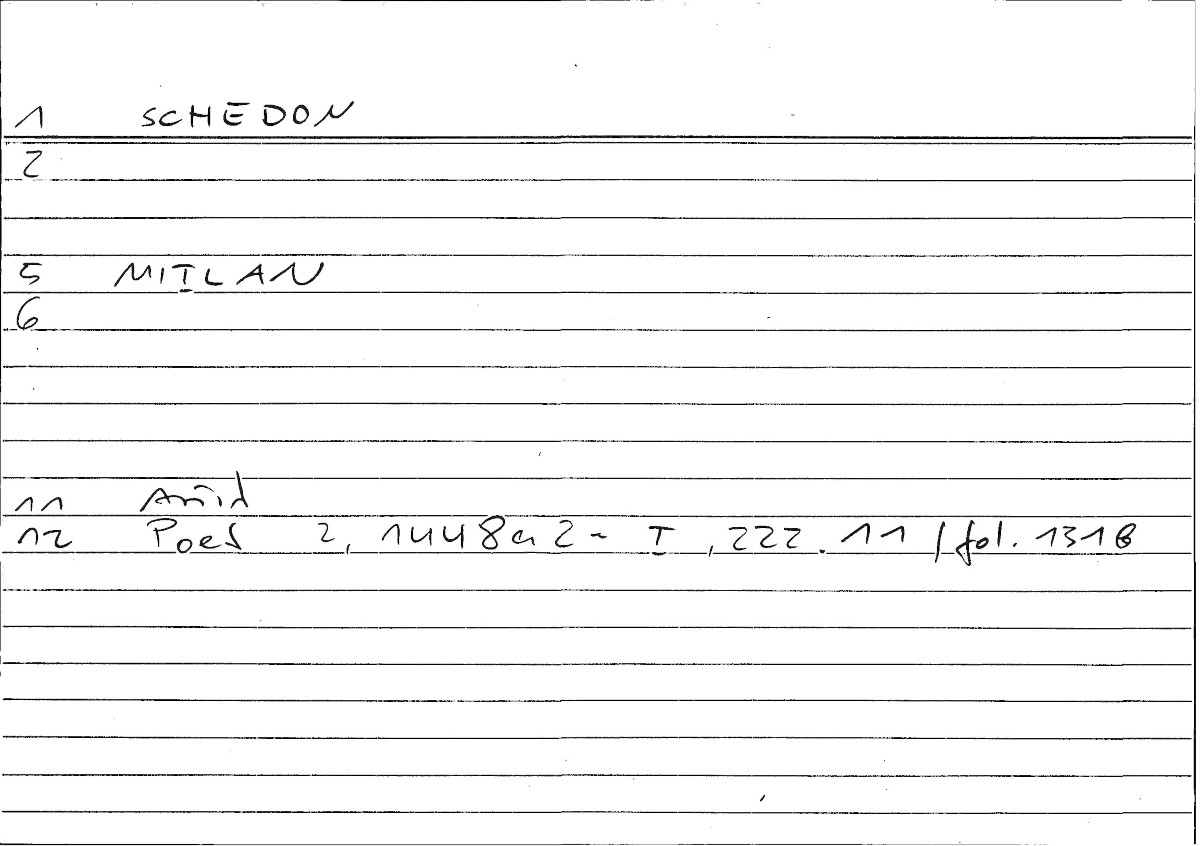 1 SCHEDON
2
5 MIṮLAN
6
11 Arist
12 Poet 2, 1448a2 - I, 222.11 / fol. 131b